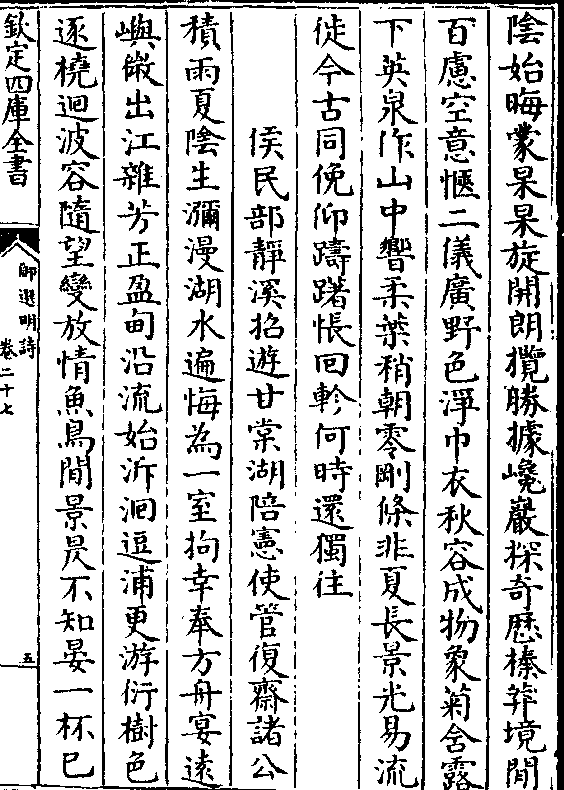 陰始晦蒙杲杲旋開朗攬勝據巉巖探奇歷榛莽境閒
百慮空意愜二儀廣野色淨巾衣秋容成物象菊含露
下英泉作山中響柔葉稍朝零剛條非夏長景光易流
徙今古同俛仰躊躇悵回軫何時還獨往
侯民部靜溪招遊甘棠湖陪憲使管復齋諸公
積雨夏陰生瀰漫湖水遍悔為一室拘幸奉方舟宴遠
嶼微出江雜芳正盈甸沿流始泝洄逗浦更游衍樹色
逐橈迴波容隨望變放情魚鳥閒景昃不知晏一杯已
欽定四庫全書
師選明詩
卷二十七
五